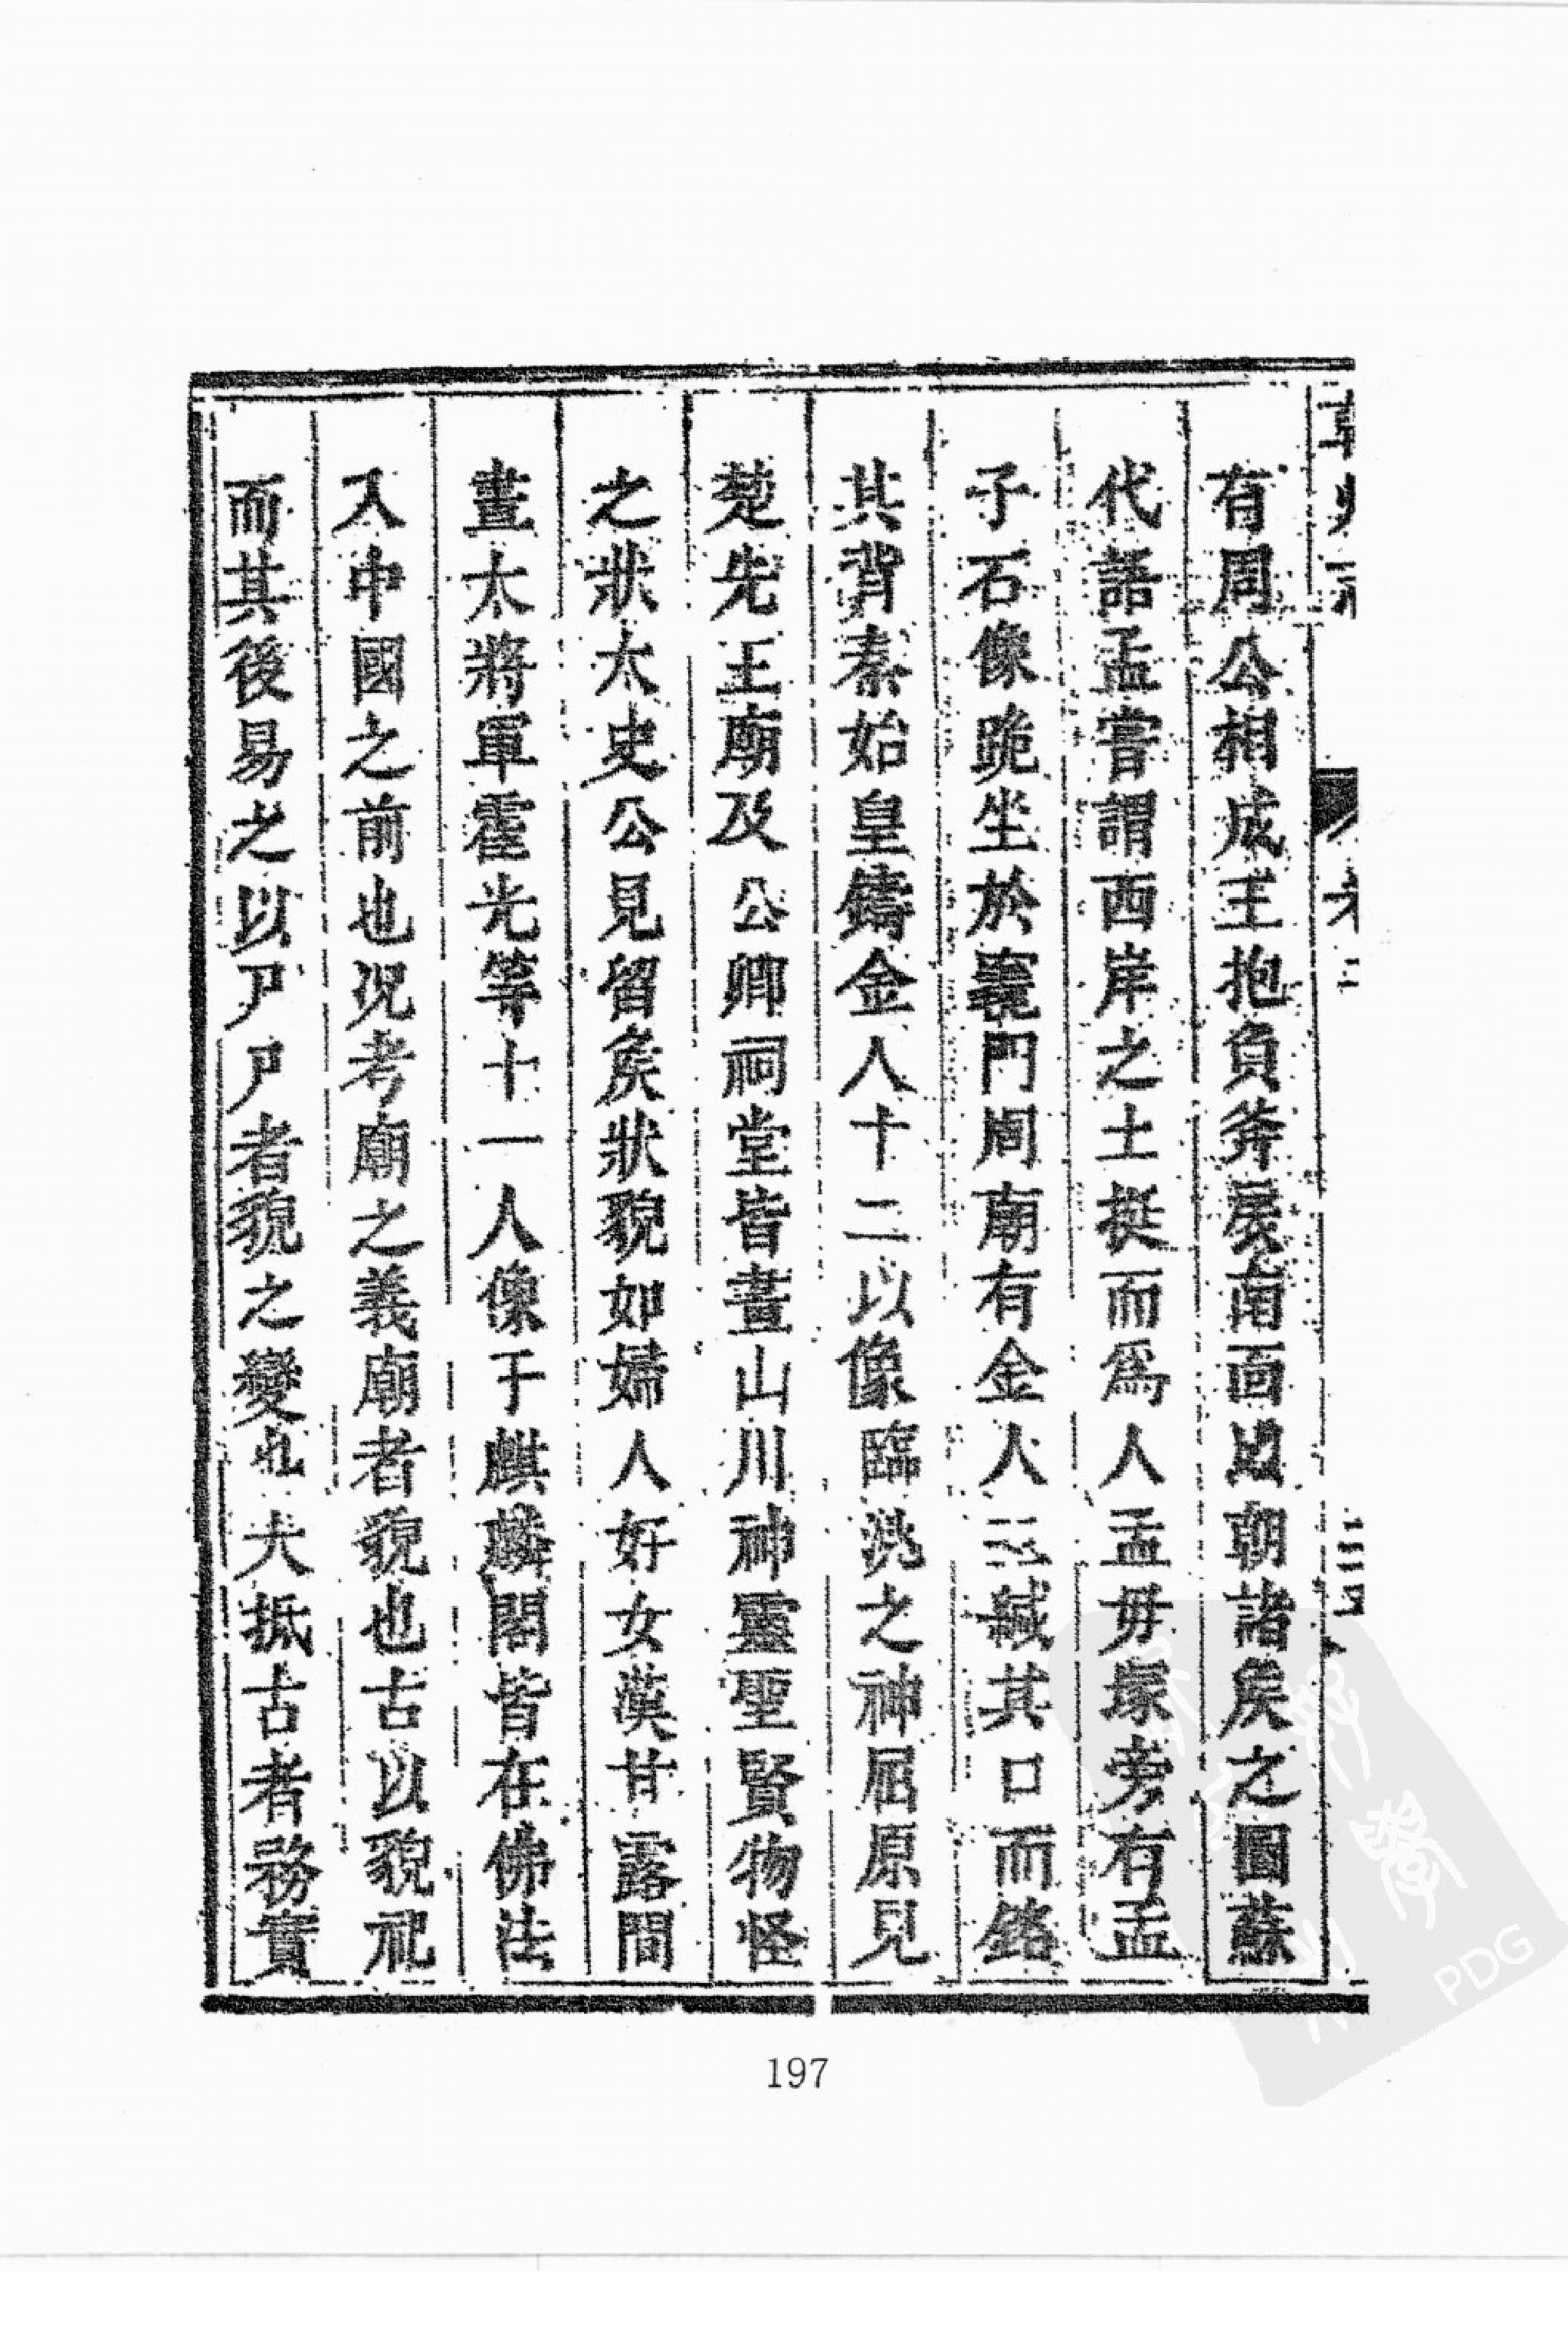 有周公相成王抱負斧扆南面以朝諸矦之圖蘇
代語孟嘗謂西岸之土挻而爲人孟毋塚旁有孟
子石像跪坐於竈門周廟有金人三緘其口而銘
其背秦始皇鑄金人十二以像臨洮之神屈原見
楚先王廟及公卿祠堂皆畫山川神靈聖賢物怪
之狀太史公見留矦狀貌如婦人好女漢甘露間
畫大將軍霍光等十一人像于麒麟閣皆在佛法
入中國之前也况考廟之義廟者貌也古以貌祀
而其後易之以尸尸者貌之變也大抵古者務實
197
PDG